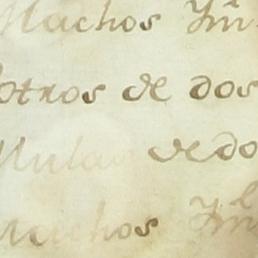 Machos
Potros de dos
Mulas de do
Machos